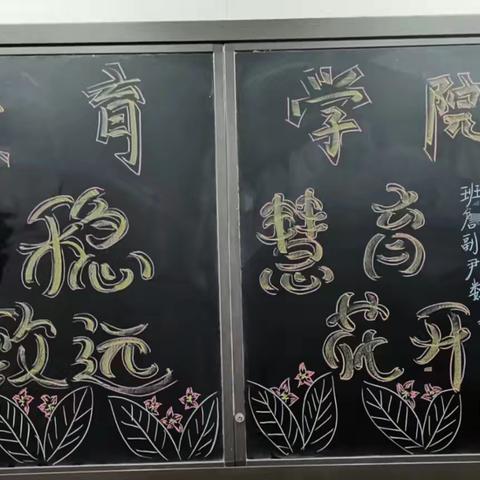 育学院
稳慧育
致远花开
班詹副尹数